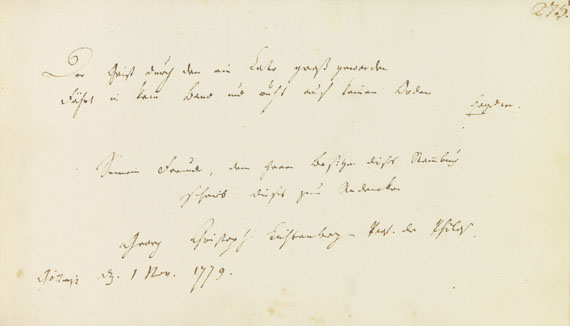 275.
Der Geist durch den ein Cato groß geworden
Fährt in kein Band und ruht auf keinen Orden
Seinem Freunde, dem Herrn Besitzer dieses Stammbuchs
schrieb dieses zum Andencken
Georg Christoph Lichtenberg Prof. der Philos.
Göttingen d. 1 Nov. 1779.